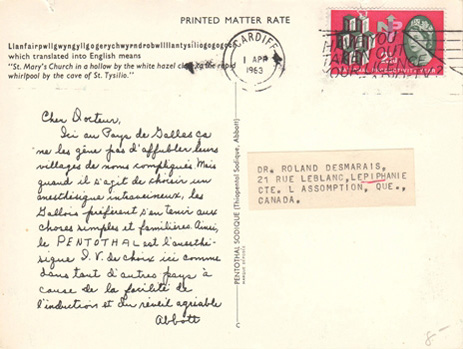 PRINTED MATTER RATE
Llanfairpwllgwyngyllgogerychwyrndrobwllllantysiliogogogoch
which translated into English means
"St. Mary's Church in a hollow by the white hazel close to the rapid
whirlpool by the cave of St. Tysilio."
CARDIFF
1 APR
1963
HAVE YOU
TAKEN OUT
YOUR
Cher Docteur,
Ici au Pays de Galles ça
ne les gêne pas d'affubler leurs
villages de noms compliqués. Mais
quand il s'agit de choisir un
anesthésique intraveineux, les
Gallois préfèrent s'en tenir aux
choses simples et familières. Ainsi,
le PENTOTHAL est l'anesthé-
sique I.V. de choix ici comme
dans tant d'autres pays à
cause de la facilité de
l'induction et du réveil agréable
Abbott
PENTOTHAL SODIQUE (Thiopental Sodique, Abbott)
DR. ROLAND DESMARAIS,
21 RUE LEBLANC, LEPIPHANIE
CTE. L ASSOMPTION, QUE.,
CANADA.
8-